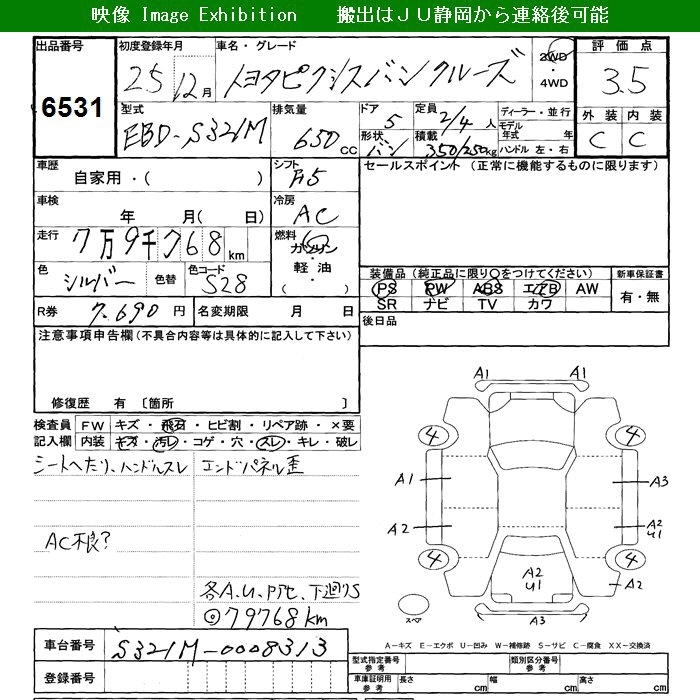 映像 Image Exhibition 搬出はＪＵ静岡から連絡後可能
出品番号 6531
初度登録年月 25 12月
車名・グレード トヨタピクシスバンクルーズ
2WD・4WD
評価点 3.5
型式 EBD-S321M
排気量 650 cc
ドア 5
形状 バン
定員 2/4 人
積載 350/250kg
ディーラー・並行
モデル年式 年
ハンドル 左・右
外装 C 内装 C
車歴 自家用・( )
シフト A5
セールスポイント (正常に機能するものに限ります)
車検 年 月( 日)
冷房 AC
走行 7万9千768km
燃料 ガソリン・軽油・( )
色 シルバー 色替
色コード S28
装備品 (純正品に限り○をつけてください)
新車保証書 有・無
PS PW ABS エアB AW
SR ナビ TV カワ
R券 7,690 円
名変期限 月 日
後日品
注意事項申告欄(不具合内容等は具体的に記入して下さい)
修復歴 有 〔箇所 〕
検査員記入欄
FW キズ・飛石・ヒビ割・リペア跡・×要
内装 キズ・汚レ・コゲ・穴・スレ・キレ・破レ
シートへたり、ハンドルスレ
エンドパネル歪
AC不良?
各A.U、 下廻りS
◎79768km
A1 A1
4 4
A1 A3
A2 A2 U1
4 4
A2 U1
A2
A3
スペア
A－キズ E－エクボ U－凹み W－補修跡 S－サビ C－腐食 XX－交換済
車台番号 S321M-0008313
登録番号
型式指定番号 参考
類別区分番号 参考
車庫証明用 参考
長さ cm 幅 cm 高さ cm